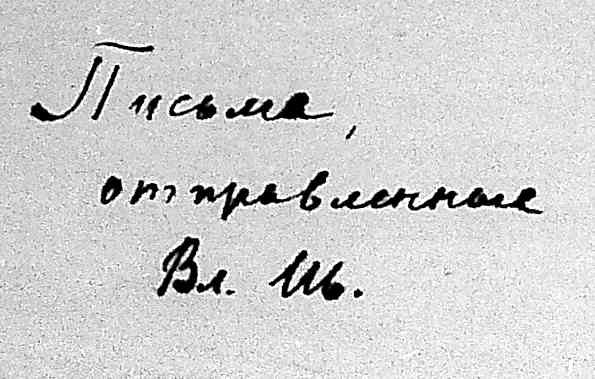 Письма,
отправленные
Вл. Шь.